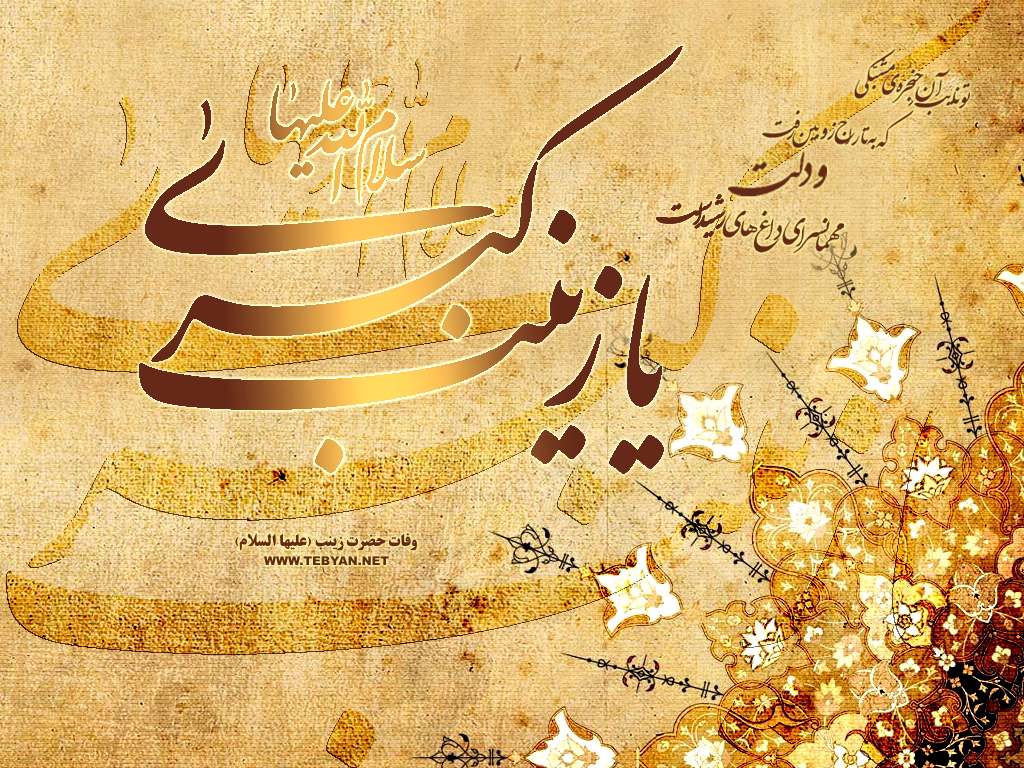 تو نایب آن حنجره‌ی مشبکی
که به تاراج زوبین رفت
و دلت
مهمانسرای داغ های رشید است
یا زینب کبری
سلام الله علیها
وفات حضرت زینب (علیها السلام)
WWW.TEBYAN.NET